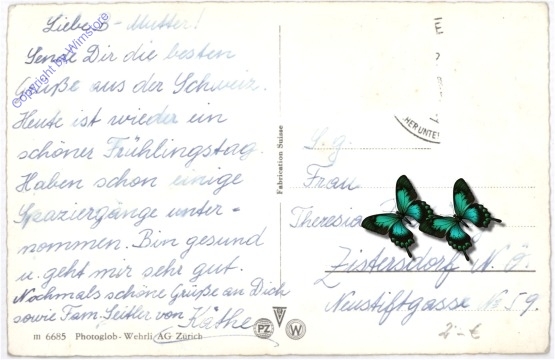 Liebe G-Mutter!
Sende Dir die besten
Grüße aus der Schweiz.
Heute ist wieder ein
schöner Frühlingstag.
Haben schon einige
Spaziergänge unter-
nommen. Bin gesund
u. geht mir sehr gut.
Nochmals schöne Grüße an Dich
sowie Fam. Seitler von Käthe
m 6685 Photoglob-Wehrli AG Zürich
PZ W
Fabrication Suisse
Copyright by Wimstore
HER UNTE
S. g.
Frau
Theresia
Zistersdorf N. Ö.
Neustiftgasse No 59.
2.- €